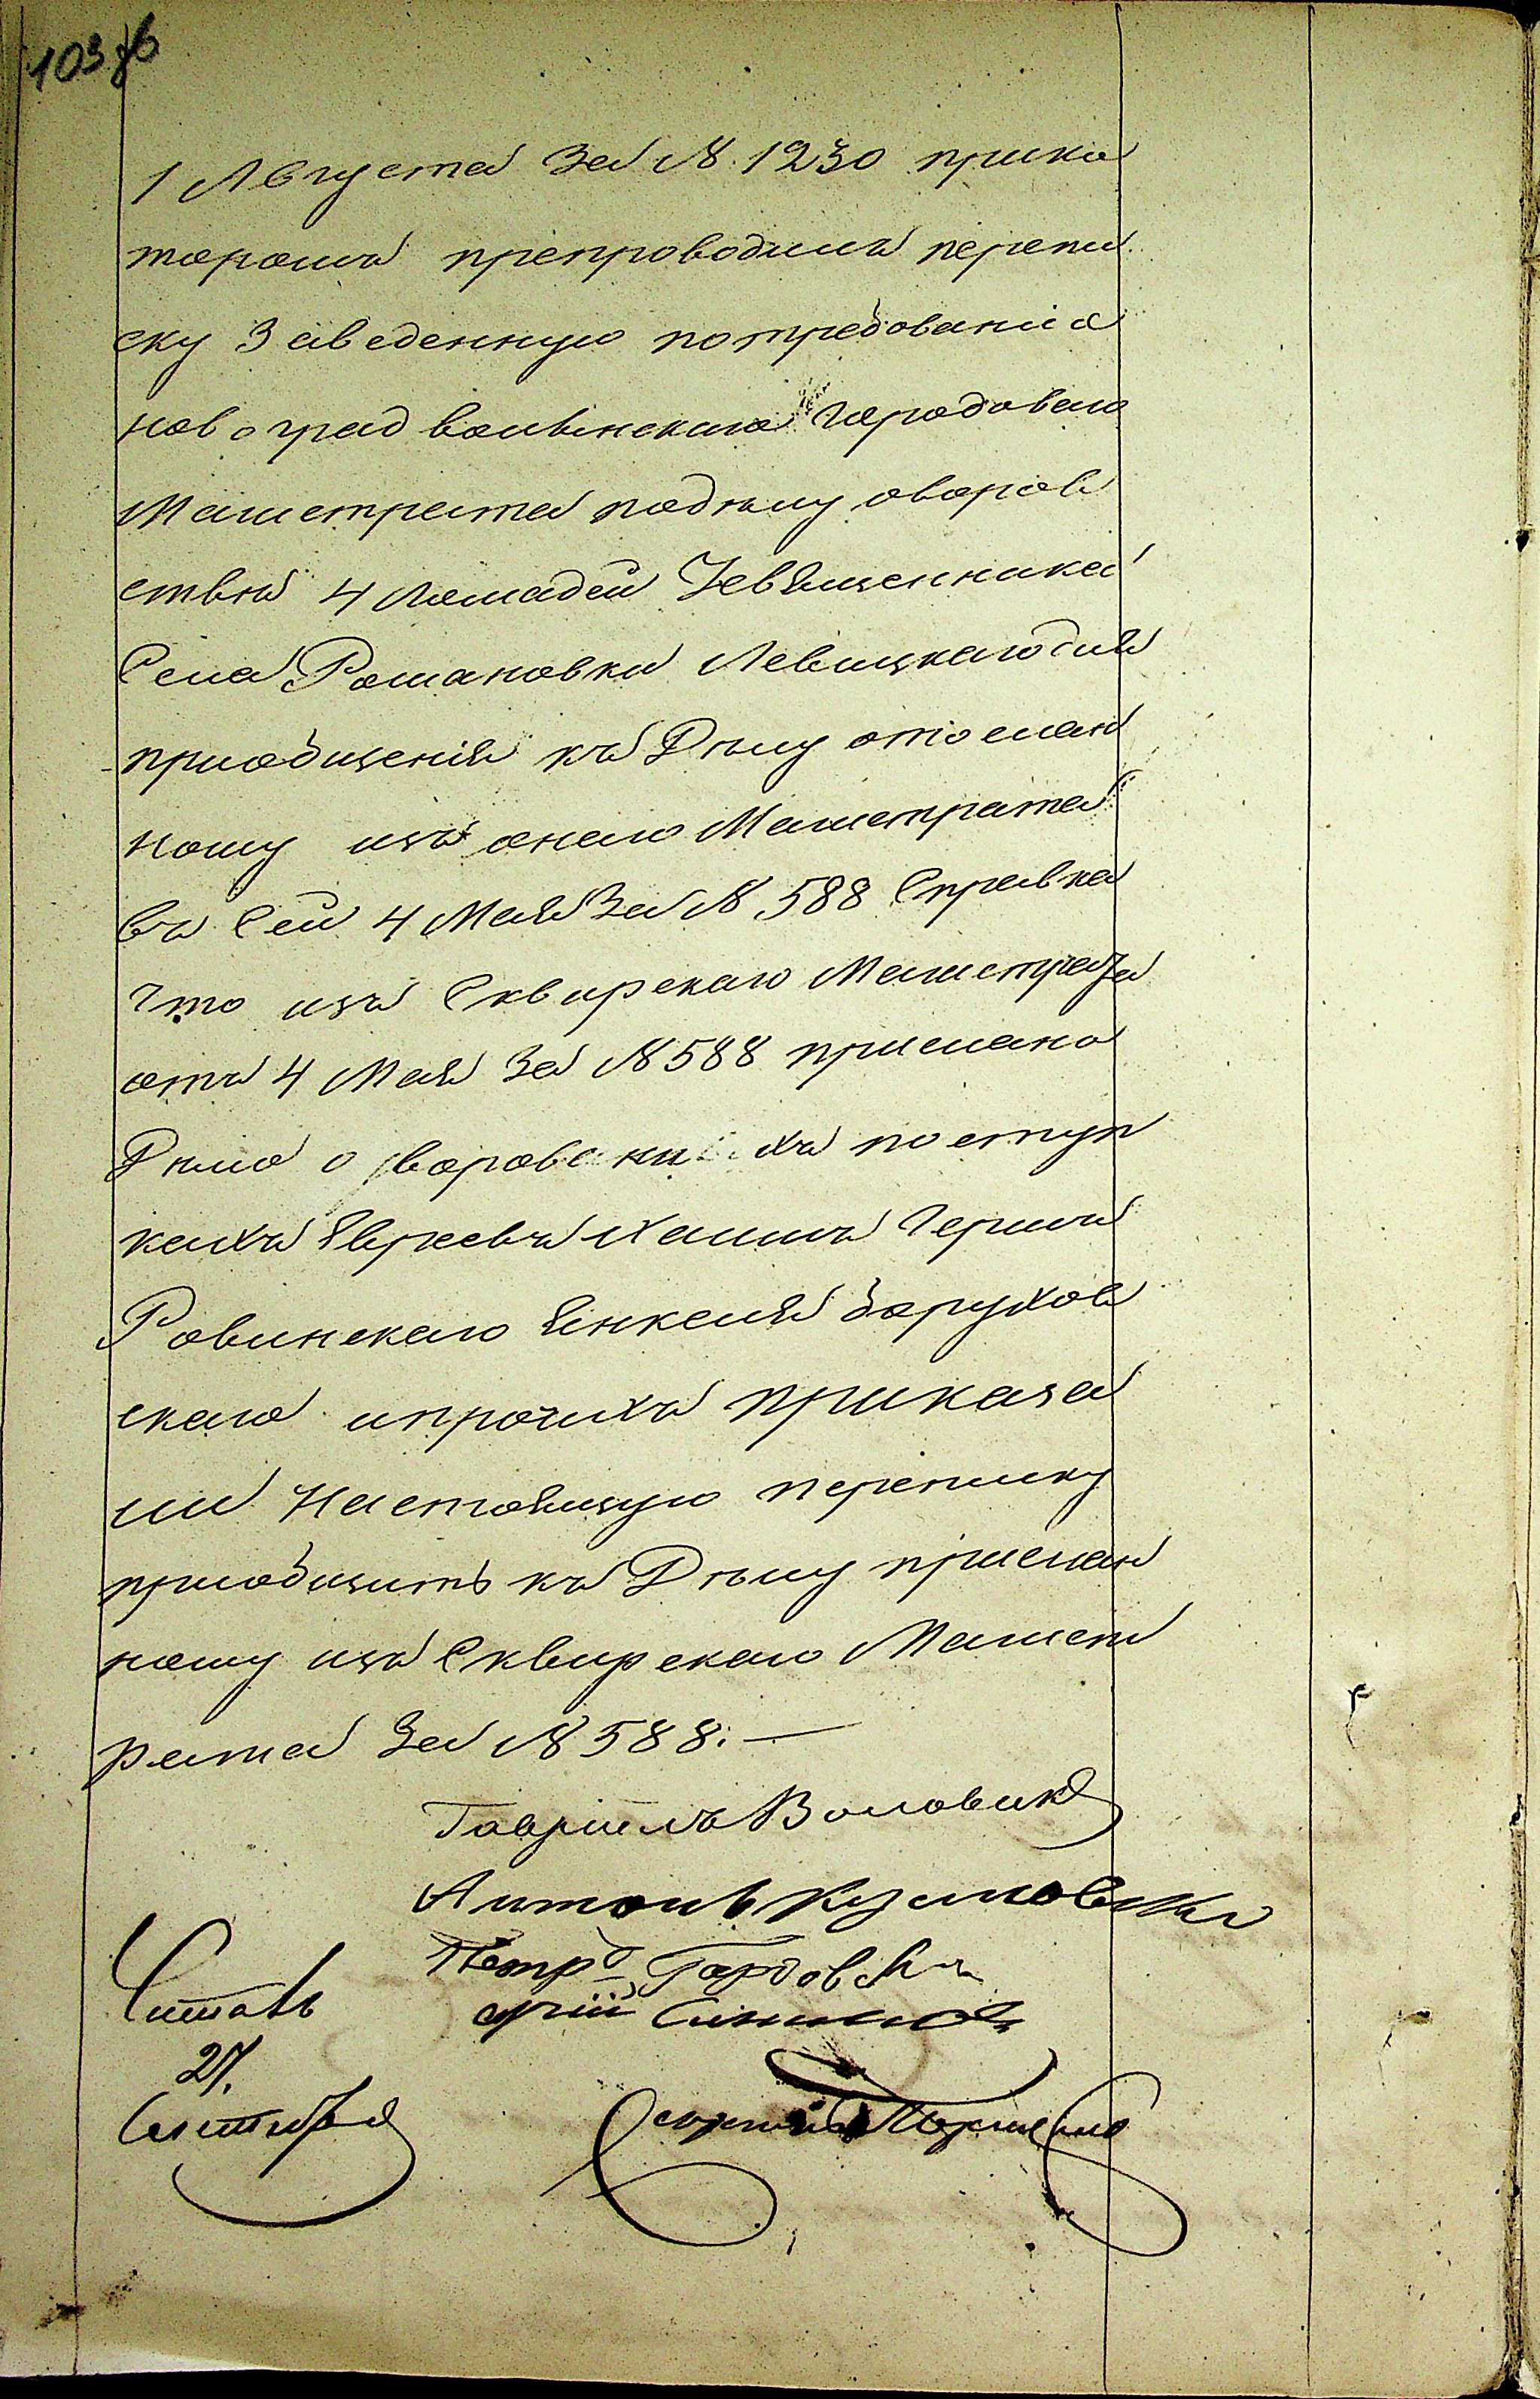 103 зв
1 Августа За № 1230 прико
торомъ препроводилъ перепи
ску Заведенную потребованiю
новоград волынскаго городоваго
Магистрата подѣлу оворов
ствѣ 4 лошадей Усвященника
Села Романовки Левицкаго для
приобщенiя къ Дѣлу отослан
ному изъ онаго Магистрата
въ Сей 4 Мая За № 588 Справка
что изъ Сквирскаго Магистрата
отъ 4 Мая За № 588 прислано
Дѣло о воровскихъ поступ
кахъ Явреевъ Хаима Герша
Ровинскаго Янкеля Борухов
скаго ипрочихъ приказа
ли Настоящую переписку
приобщить къ Дѣлу прислан
ному изъ Сквирскаго Магист
рата За № 588. —
Гаврiилъ Воловик
Антонъ
Петръ
Читалъ
27.